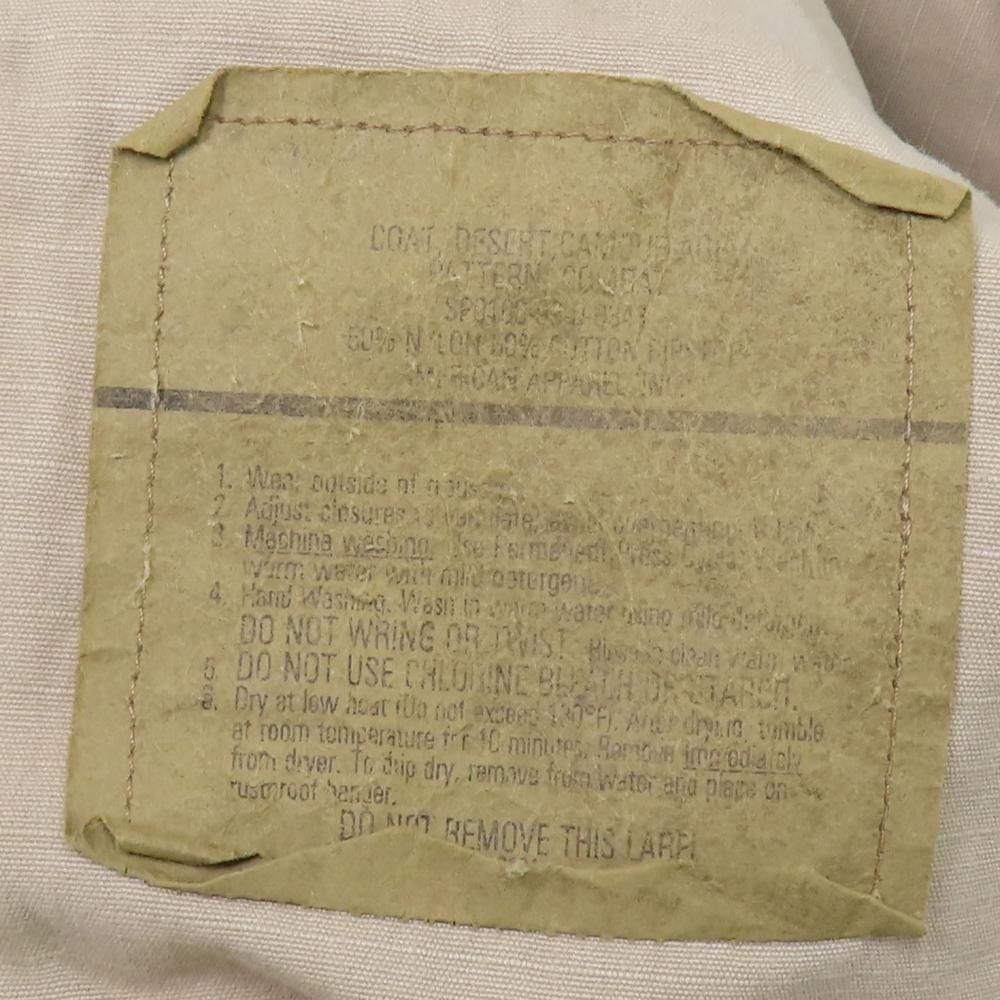 COAT, DESERT CAMOUFLAGE
PATTERN, COMBAT
50% NYLON 50% COTTON RIPSTOP
AMERICAN APPAREL, INC.
1. Wear outside of
2. Adjust closures to ventilate,
3. Machine washing. Use Permanent Press Cycle. Wash in
warm water with mild detergent.
4. Hand Washing. Wash in warm water using mild detergent.
DO NOT WRING OR TWIST. Rinse in clean warm water.
5. DO NOT USE CHLORINE BLEACH OR STARCH.
6. Dry at low heat (Do not exceed 130°F). After drying, tumble
at room temperature for 10 minutes. Remove immediately
from dryer. To drip dry, remove from water and place on
rustproof hanger.
DO NOT REMOVE THIS LABEL